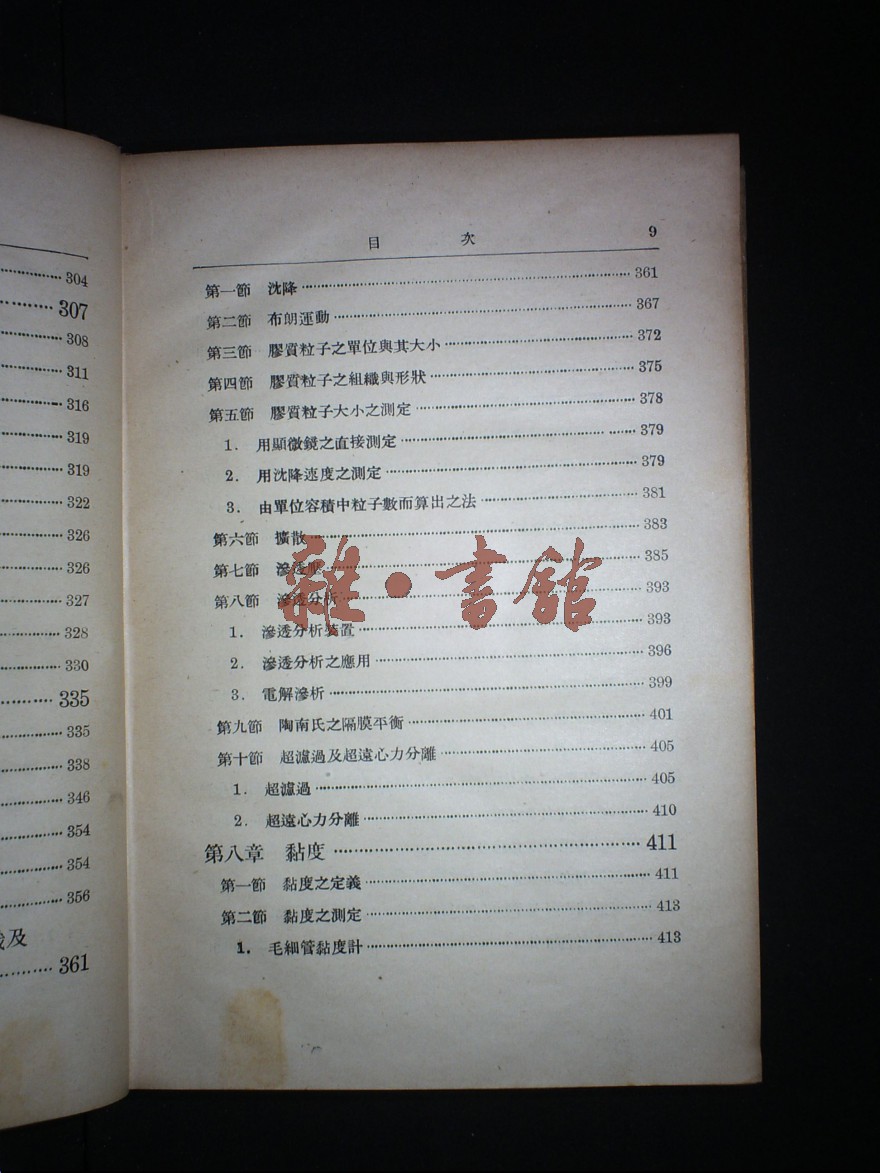 304
307
308
311
316
319
319
322
326
326
327
328
330
335
335
338
346
354
354
356
及
361
目 次 9
第一節 沈降 361
第二節 布朗運動 367
第三節 膠質粒子之單位與其大小 372
第四節 膠質粒子之組織與形狀 375
第五節 膠質粒子大小之測定 378
1. 用顯微鏡之直接測定 379
2. 用沈降速度之測定 379
3. 由單位容積中粒子數而算出之法 381
第六節 擴散 383
第七節 滲透壓 385
第八節 滲透分析 393
1. 滲透分析裝置 393
2. 滲透分析之應用 396
3. 電解滲析 399
第九節 陶南氏之隔膜平衡 401
第十節 超濾過及超遠心力分離 405
1. 超濾過 405
2. 超遠心力分離 410
第八章 黏度 411
第一節 黏度之定義 411
第二節 黏度之測定 413
1. 毛細管黏度計 413
雜·書館